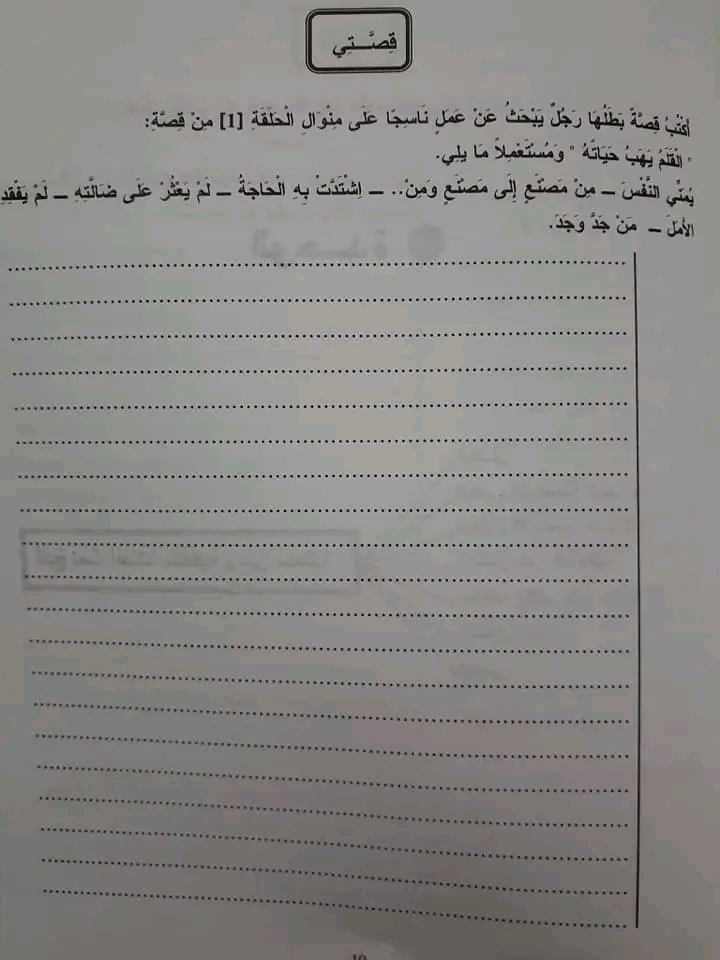 قِصَّـــتِي
أَكْتُبُ قِصَّةً بَطَلُهَا رَجُلٌ يَبْحَثُ عَنْ عَمَلٍ نَاسِجًا عَلَى مِنْوَالِ الْحَلَقَةِ [1] مِنْ قِصَّةِ:
" الْقَلَمُ يَهَبُ حَيَاتَهُ " وَمُسْتَعْمِلاً مَا يلِي.
يُمَنِّي النَّفْسَ ـــ مِنْ مَصْنَعٍ إِلَى مَصْنَعٍ وَمِنْ.. ـــ اِشْتَدَّتْ بِهِ الْحَاجَةُ ـــ لَمْ يَعْثُرْ عَلَى ضَالَّتِهِ ـــ لَمْ يَفْقِدِ
الأَمَلَ ـــ مَنْ جَدَّ وَجَدَ.